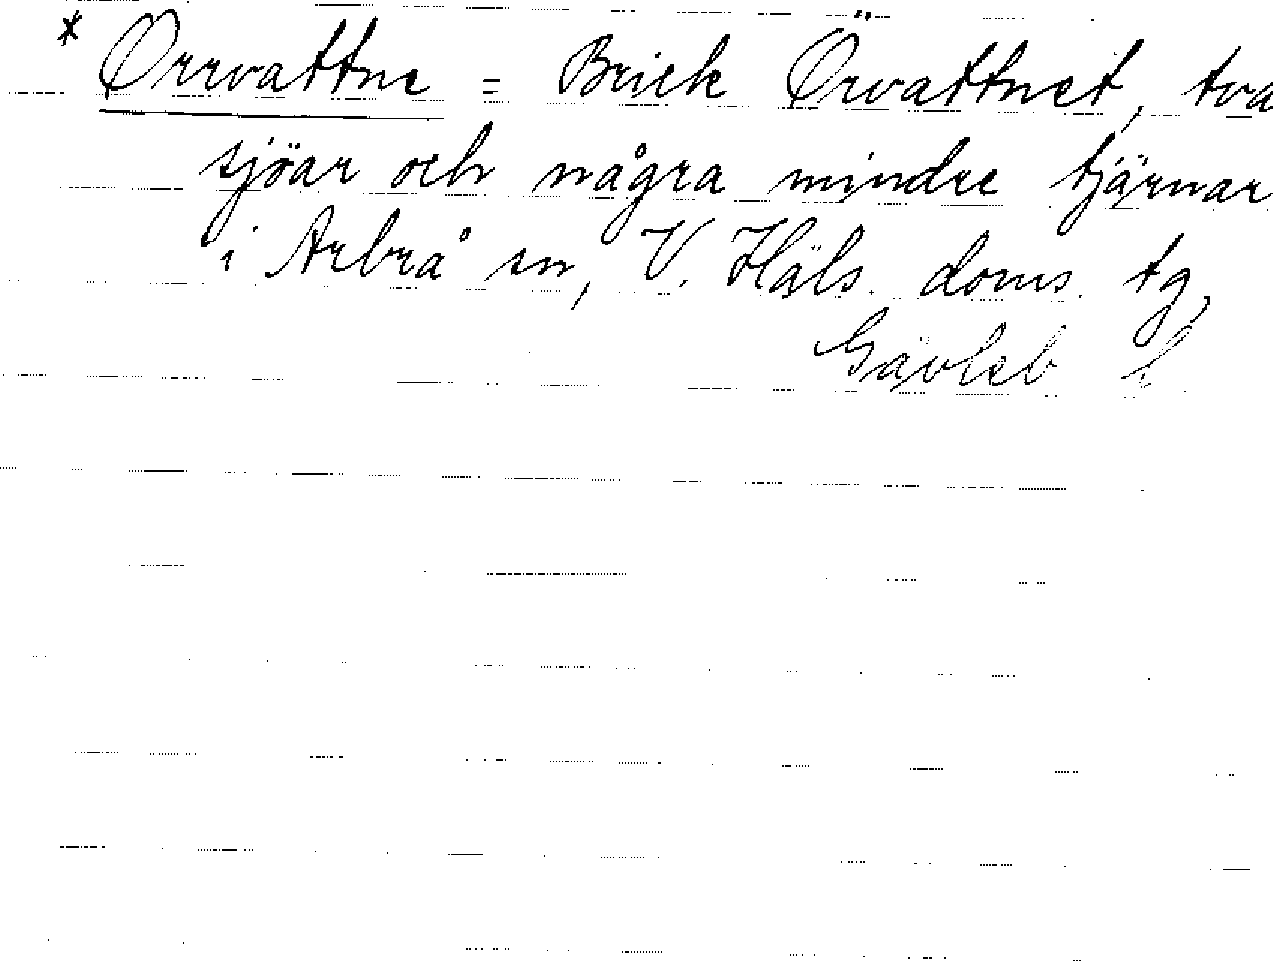 * Örrvattne = Brick Örvattnet, två
sjöar och några mindre tjärnar
i Arbrå sn, V. Häls. doms. tg,
Gävleb l